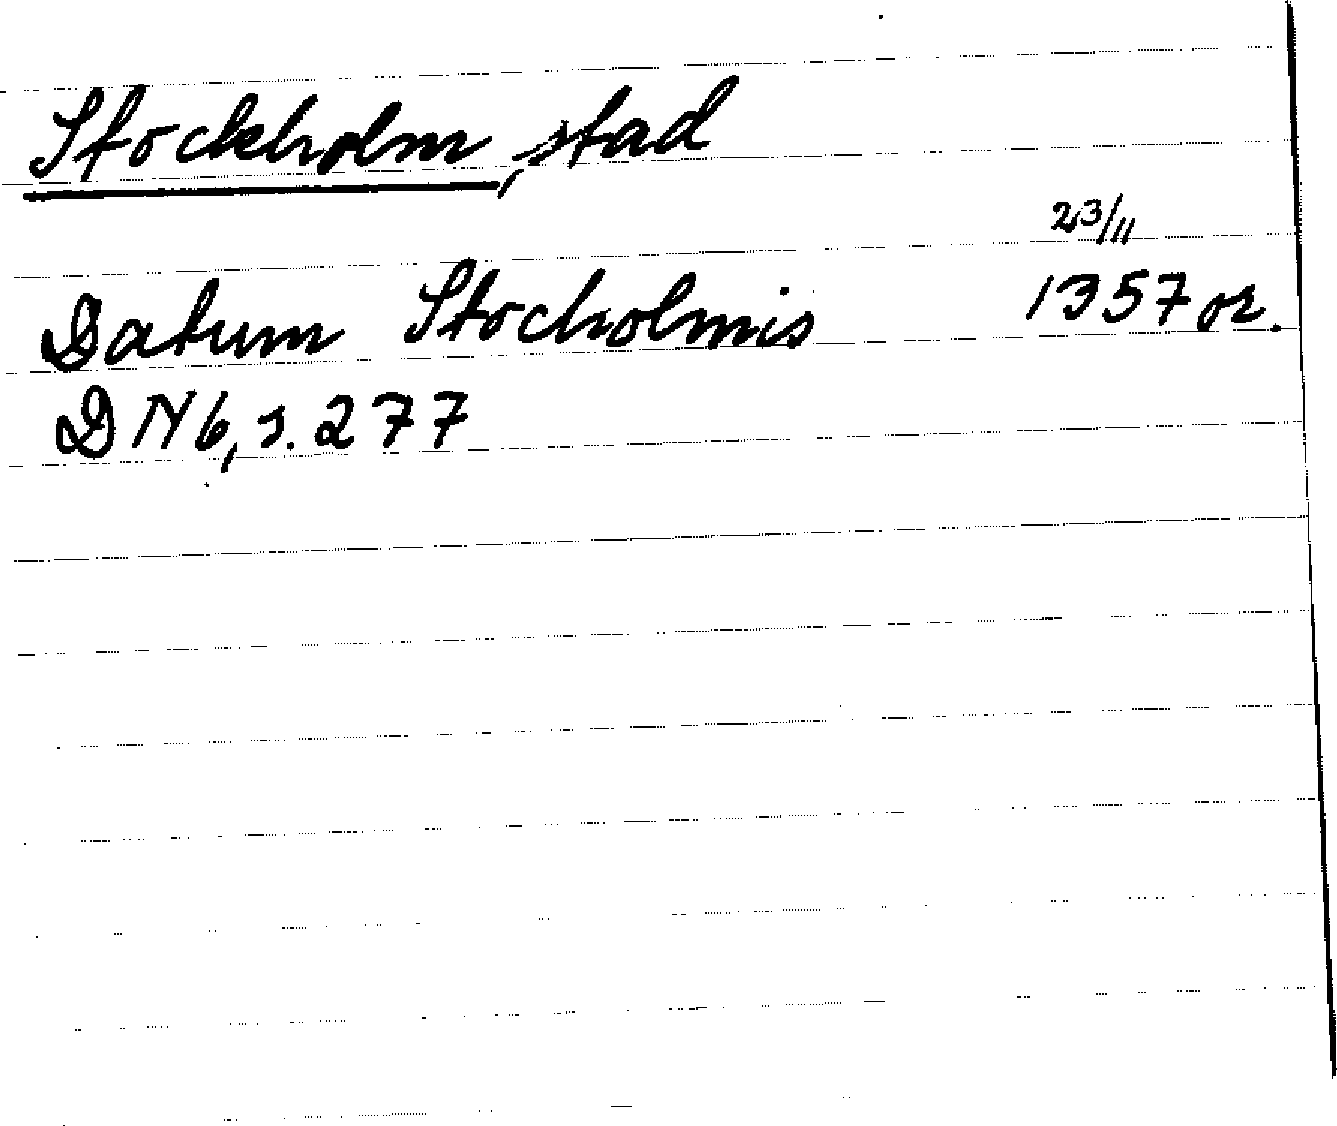 Stockholm, stad
23/11
Datum Stocholmis 1357 or.
DN 6, s. 277